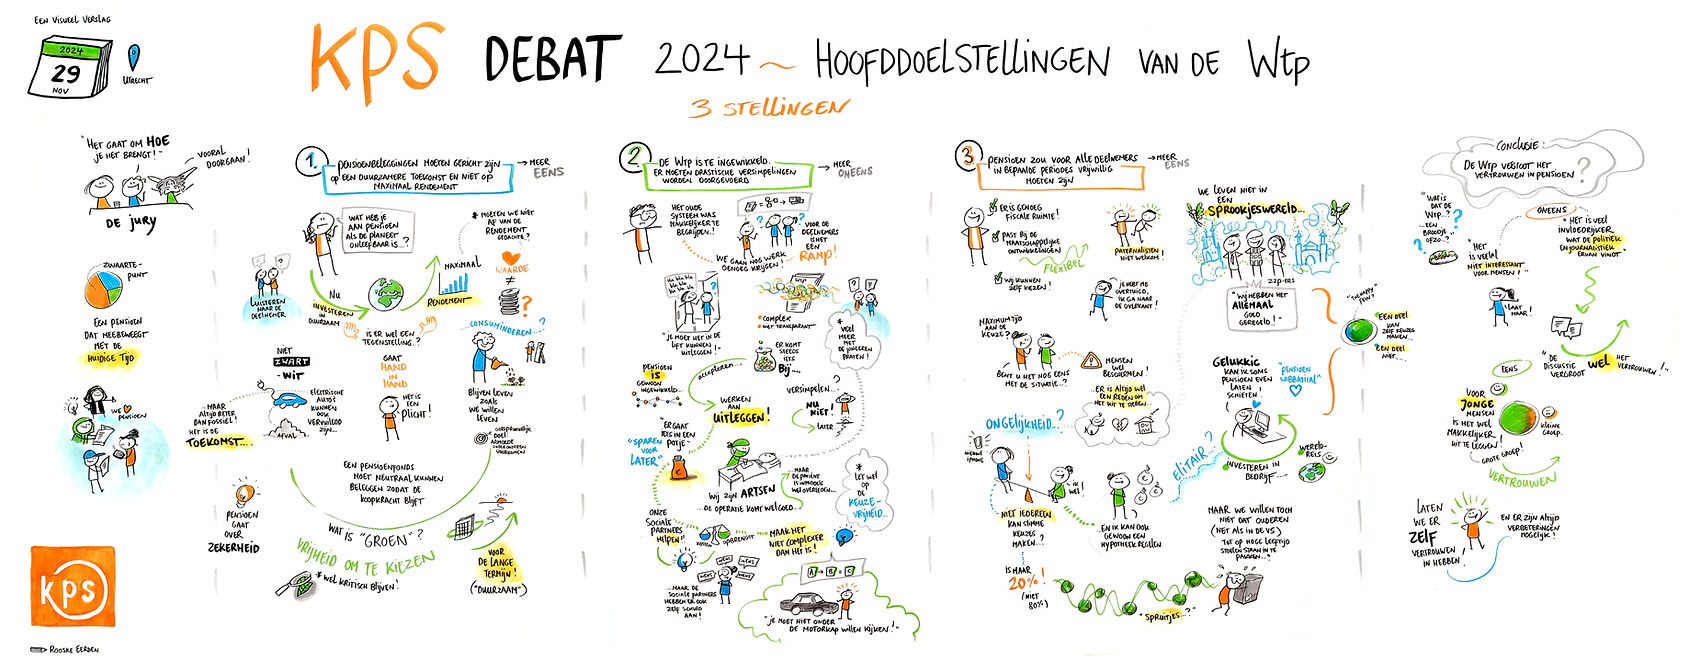 EEN VISUEEL VERSLAG
2024
29
NOV
UTRECHT
KPS DEBAT 2024 ~ HOOFDDOELSTELLINGEN VAN DE Wtp
3 STELLINGEN
"HET GAAT OM HOE
JE HET BRENGT!"
VOORAL
DOORGAAN!
DE JURY
ZWAARTE-
PUNT
EEN PENSIOEN
DAT MEEBEWEEGT
MET DE
HUIDIGE TIJD
WE
PENSIOEN
KPS
ROOSKE EERDEN
1.
PENSIOENBELEGGINGEN MOETEN GERICHT ZIJN
OP EEN DUURZAMERE TOEKOMST EN NIET OP
MAXIMAAL RENDEMENT
→ MEER
EENS
WAT HEB JE
AAN PENSIOEN
ALS DE PLANEET
ONLEEFBAAR IS...?
* MOETEN WE NIET
AF VAN DE
RENDEMENT
GEDACHTE?
LUISTEREN
NAAR DE
DEELNEMER
NU
INVESTEREN
IN
DUURZAAM
MAXIMAAL
RENDEMENT
WAARDE
≠
?
IS ER WEL EEN
TEGENSTELLING?
CONSUMINDEREN...?
NIET
ZWART
-WIT
GAAT
HAND
IN
HAND
ELECTRISCHE
AUTO'S
KUNNEN
OOK
VERVUILEND
ZIJN...
AFVAL
...MAAR
ALTIJD BETER
DAN FOSSIEL!
HET IS DE
TOEKOMST...
HET IS
EEN
PLICHT!
BLIJVEN LEVEN
ZOALS
WE WILLEN
LEVEN
OORSPRONKELIJK
DOEL:
ARMOEDE
ONDER OUDEREN
VOORKOMEN
EEN PENSIOENFONDS
MOET NEUTRAAL KUNNEN
BELEGGEN ZODAT DE
KOOPKRACHT BLIJFT
PENSIOEN
GAAT
OVER
ZEKERHEID
WAT IS "GROEN"?
VRIJHEID OM TE KIEZEN
* WEL KRITISCH BLIJVEN!
VOOR
DE LANGE
TERMIJN!
("DUURZAAM")
2.
DE Wtp IS TE INGEWIKKELD.
ER MOETEN DRASTISCHE VERSIMPELINGEN
WORDEN DOORGEVOERD
→ MEER
ONEENS
HET OUDE
SYSTEEM WAS
MAKKELIJKER TE
BEGRIJPEN!
VOOR DE
DEELNEMERS
IS HET
EEN
RAMP!
WE GAAN NOG WERK
GENOEG KRIJGEN!
BLA BLA
BLA BLA
BLA BLA
"JE MOET HET IN DE
LIFT KUNNEN
UITLEGGEN!"
* COMPLEX
* NIET TRANSPARANT
* VEEL
MEER
MET
DE JONGEREN
PRATEN!
ER KOMT
STEEDS
IETS
BIJ...
PENSIOEN
IS
GEWOON
INGEWIKKELD...
ACCEPTEREN...
WERKEN
AAN
UITLEGGEN!
VERSIMPELEN...
NU
NIET!
LATER
ER GAAT
IETS IN EEN
POTJE
"SPAREN
VOOR
LATER"
WIJ ZIJN ARTSEN
...DE OPERATIE KOMT WEL GOED...
...MAAR
DE PATIËNT
IS INMIDDELS
WEL OVERLEDEN...
* LET WEL
OP
DE
KEUZE-
VRIJHEID...
ONZE
SOCIALE
PARTNERS
HELPEN!
KOSTEN
OPBRENGST
MAAK HET
NIET COMPLEXER
DAN HET IS!
...MAAR DE
SOCIALE PARTNERS
HEBBEN ER OOK
ZELF SCHULD
AAN!
NEWS
NEWS
NEWS
A → B = C
"JE MOET NIET ONDER
DE MOTORKAP WILLEN KIJKEN!"
3.
PENSIOEN ZOU VOOR ALLE DEELNEMERS
IN BEPAALDE PERIODES VRIJWILLIG
MOETEN ZIJN
→ MEER
EENS
ER IS GENOEG
FISCALE RUIMTE!
PAST BIJ DE
MAATSCHAPPELIJKE
ONTWIKKELINGEN
FLEXIBEL
WIJ KUNNEN
ZELF KIEZEN!
PATERNALISTEN
NIET WELKOM!
JE HEBT ME
OVERTUIGD,
IK GA NAAR
DE OVERKANT!
MAXIMUM TIJD
AAN DE
KEUZE?
BENT U HET NOG EENS
MET DE SITUATIE...?
MENSEN
WEL
BESCHERMEN!
...ER IS ALTIJD WEL
EEN REDEN OM
HET UIT TE STELLEN...
ONGELIJKHEID...?
NIEUWE
IPHONE
IK
WEL!
NIET IEDEREEN
KAN SLIMME
KEUZES
MAKEN...?
IS MAAR
20%!
(NIET
80%)
EN IK KAN OOK
GEWOON EEN
HYPOTHEEK REGELEN
WE LEVEN NIET IN
EEN
SPROOKJESWERELD...
ZZP-ERS
"WIJ HEBBEN HET
ALLEMAAL
GOED
GEREGELD!"
GELUKKIG
KAN IK SOMS
PENSIOEN EVEN
LATEN
SCHIETEN!
"PENSIOEN
SABBATICAL"
ELITAIR...?
INVESTEREN IN
BEDRIJF...
WERELD-
REIS
MAAR WE WILLEN TOCH
NIET DAT OUDEREN
(NET ALS IN DE VS)
TOT OP HOGE LEEFTIJD
SPULLEN STAAN IN TE
PAKKEN...?
"SPRUITJES...?"
"THE HAPPY
FEW"?
EEN DEEL
KAN
ZELF KEUZES
MAKEN...
EEN DEEL
NIET...
CONCLUSIE:
DE Wtp VERGROOT HET
VERTROUWEN IN PENSIOEN
?
WAT IS
DAT DE
Wtp...?
...EEN
BROODJE
OFZO...?
ONEENS
"HET IS
VEELAL
NIET INTERESSANT
VOOR MENSEN!"
"HET IS VEEL
INVLOEDRIJKER
WAT DE POLITIEK
EN JOURNALISTIEK
ERVAN VINDT"
LAAT
MAAR!
"DE
DISCUSSIE
VERGROOT WEL HET
VERTROUWEN!"
EENS
VOOR
JONGE
MENSEN
IS HET WEL
MAKKELIJKER
UIT TE LEGGEN!
KLEINE
GROEP...
GROTE GROEP!
VERTROUWEN
LATEN
WE ER
ZELF
VERTROUWEN
IN HEBBEN!
EN ER ZIJN ALTIJD
VERBETERINGEN
MOGELIJK!